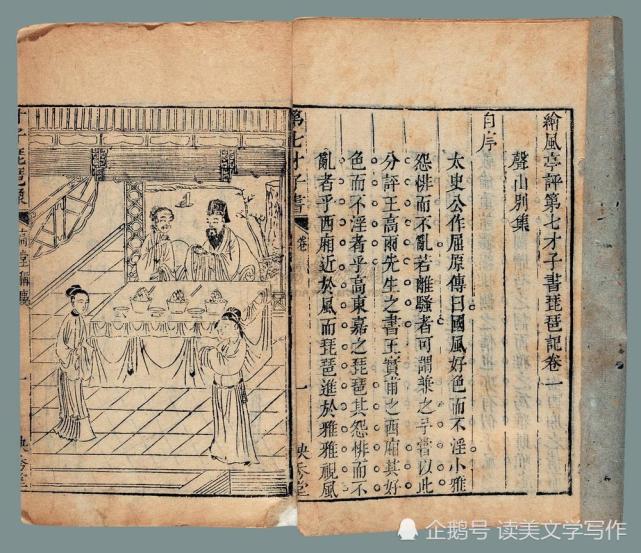 繪風亭評第七才子書琵琶記卷一
聲山別集
自序
太史公作屈原傳曰國風好色而不淫小雅
怨悱而不亂若離騷者可謂兼之予嘗以此
分評王高兩先生之書王實甫之西廂其好
色而不淫者乎高東嘉之琵琶其怨悱而不
亂者乎西廂近於風而琵琶進於雅雅視風
第七才子書
卷
一
映秀堂
才子琵琶
一
映秀堂
企鹅号 读美文学写作